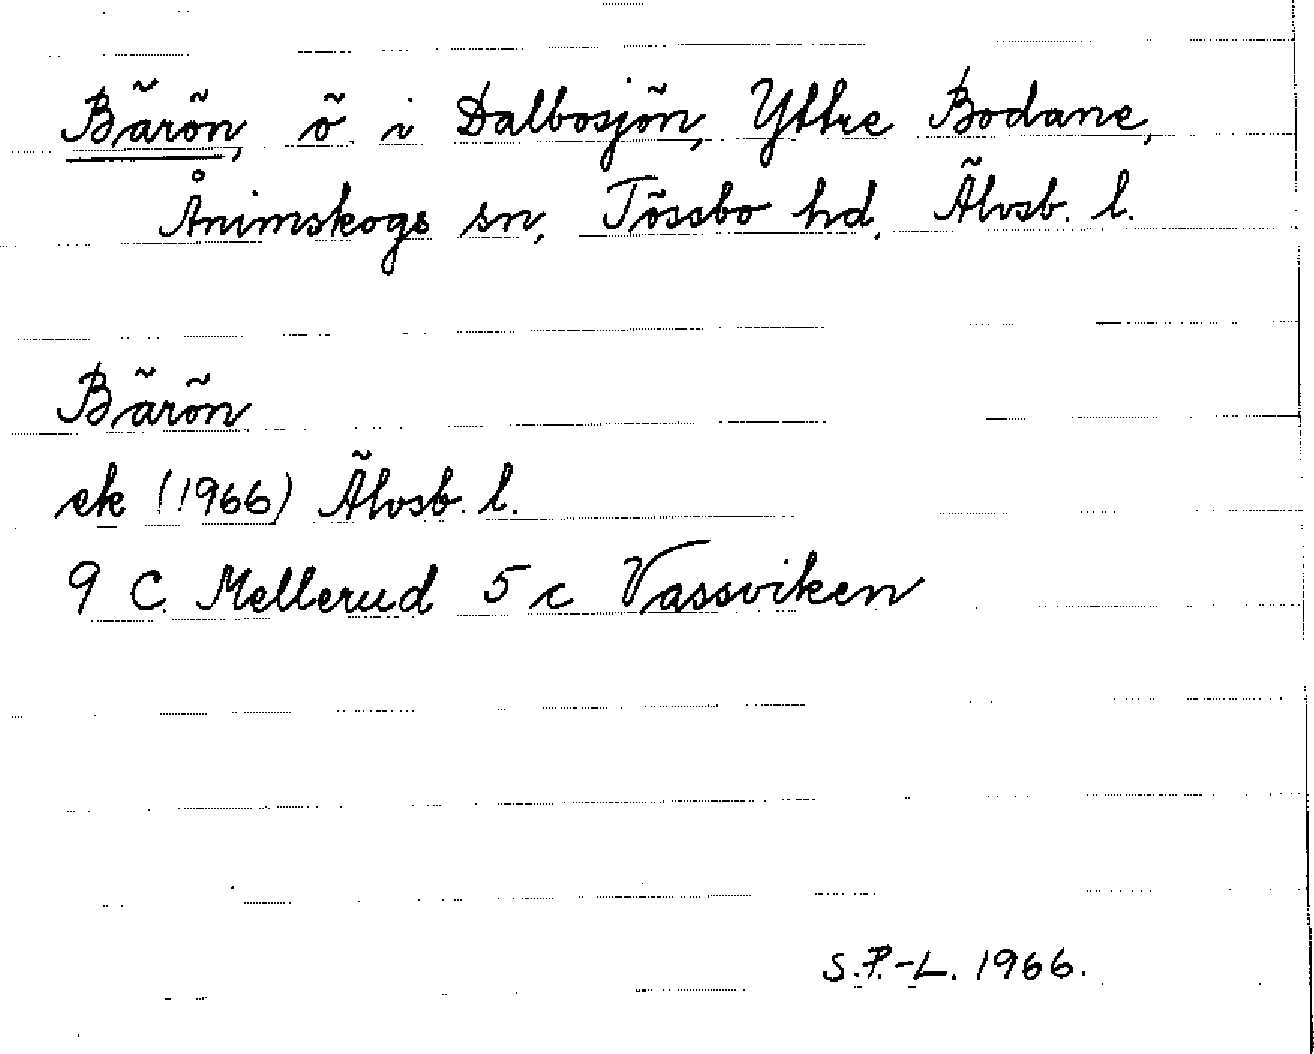 Bärön, ö i Dalbosjön, Yttre Bodane,
Ånimskogs sn, Tössbo hd, Älvsb. l.
Bärön
ek (1966) Älvsb. l.
9 C. Mellerud 5 c Vassviken
S.P.-L. 1966.